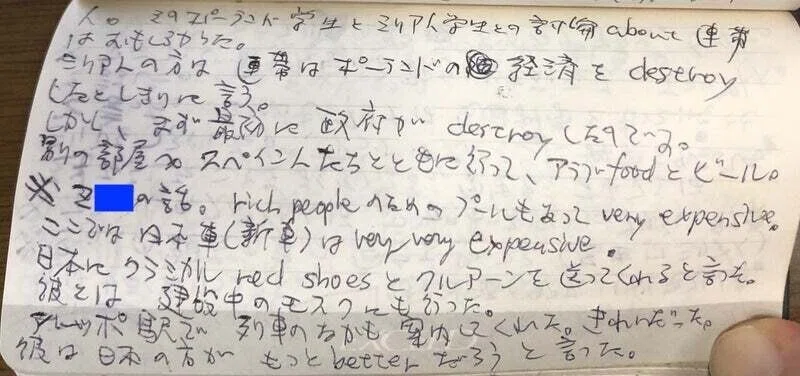 人。そのポーランド学生とシリア人学生との討論 about 連帯
はおもしろかった。
シリア人の方は 連帯はポーランドの 経済を destroy
したとしきりに言う。
しかし、まず最初に政府が destroy したのです。
別の部屋へスペイン人たちとともに行って、アラブ food とビール。
※ の話。rich people のためのプールもあって very expensive.
ここでは日本車(新車)は very very expensive.
日本に red shoes とクルアーンを送ってくれると言った。
彼とは 建設中のモスクにも行った。
アレッポ駅で 列車のなかも案内してくれた。きれいだった。
彼は日本の方が もっと better だろうと言った。